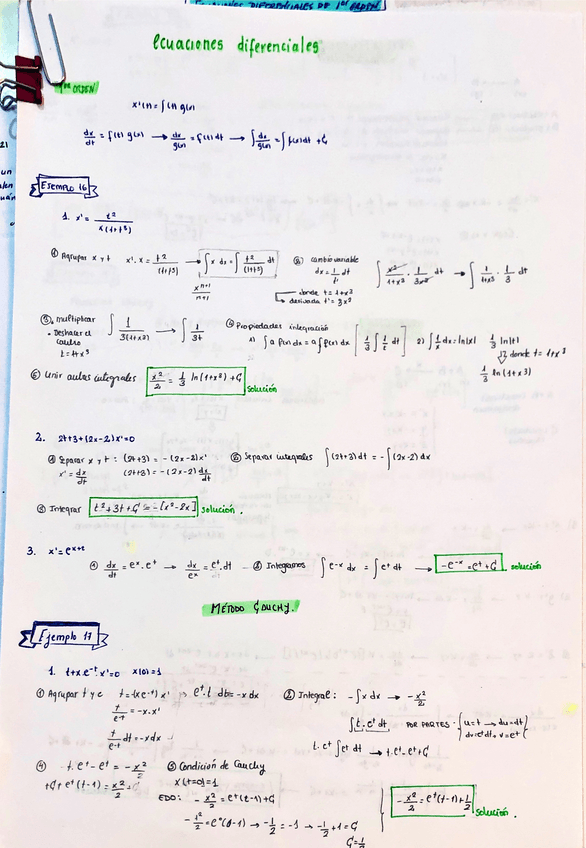 ECUACIONES DIFERENCIALES DE 1er ORDEN
Ecuaciones diferenciales
1er ORDEN
x'(t) = f(t) g(x)
dx/dt = f(t) g(x) → dx/g(x) = f(t) dt → ∫ dx/g(x) = ∫ f(t) dt + C
EJEMPLO 16
1. x' = t²/x(1+t³)
① Agrupar x y t x'. x = t²/(1+t³) → ∫ x dx = ∫ t²/(1+t³) dt
x^(n+1)/n+1
② cambio variable
dx = 1/t' dt
donde t = 1+x³
derivada t' = 3x²
∫ x²/1+x³ · 1/3x² dt → ∫ 1/1+x³ · 1/3 dt
③ multiplicar ∫ 1/3(1+x³) → ∫ 1/3t
• Deshacer el cambio
t = 1+x³
④ Propiedades integración
1) ∫ a f(x) dx = a ∫ f(x) dx [1/3 ∫ 1/t dt] 2) ∫ 1/x dx = ln|x| 1/3 ln|t|
donde t = 1+x³
1/3 ln(1+x³)
⑤ Unir ambas integrales x²/2 = 1/3 ln(1+x³) + C solución
2. 2t+3+(2x-2)x'=0
① Separar x y t: (2t+3) = -(2x-2)x'
x' = dx/dt (2t+3) = -(2x-2) dx/dt
② Separar integrales ∫(2t+3) dt = -∫(2x-2) dx
③ Integrar t²+3t+C = -[x²-2x] solución.
3. x' = e^(x+t)
① dx/dt = e^x · e^t → dx/e^x = e^t · dt ② Integramos ∫ e^-x dx = ∫ e^t dt → -e^-x = e^t + C solución
MÉTODO CAUCHY.
Ejemplo 17
1. t+x.e^-t.x'=0 x(0)=1
① Agrupar t y c t = -(xe^-t) x' ⇒ e^t.t dt = -x dx
t/e^-t = -x.x'
t/e^-t dt = -x dx
② Integral: -∫ x dx → -x²/2
∫ t.e^t dt POR PARTES: {u=t → du=dt
dv=e^t dt → v=e^t}
t.e^t ∫ e^t dt → t.e^t - e^t + C
④ t.e^t - e^t = -x²/2
+C+e^t(t-1) = x²/2 + C
⑤ Condición de Cauchy
x(t=0)=1
EDO: -x²/2 = e^t(t-1)+C
-1²/2 = e^0(0-1) → -1/2 = -1 → -1/2+1 = C
C = 1/2
-x²/2 = e^t(t-1) + 1/2 solución.